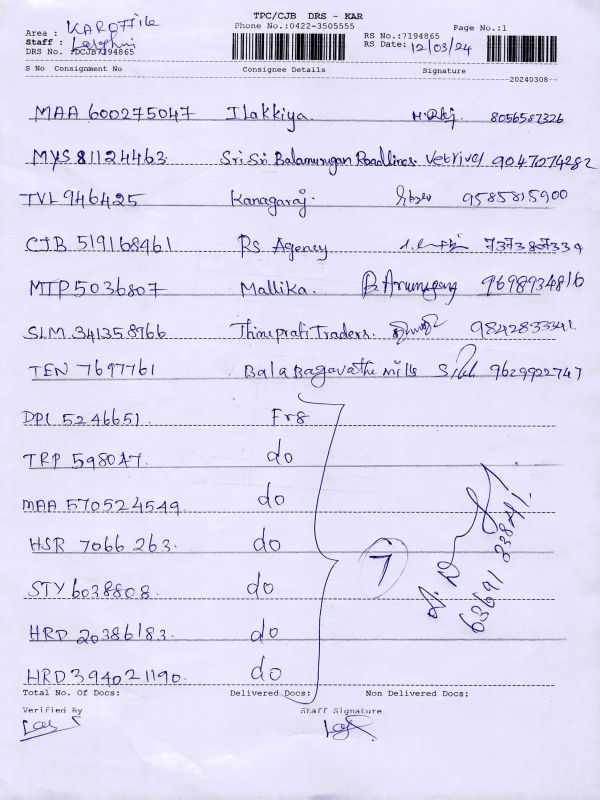 TPC/CJB DRS - KAR
Phone No.:0422-3505555
Page No.:1
Area : KAROffile
Staff :
DRS No. :DCJB7194865
RS No.:7194865
RS Date: 12/03/24
S No Consignment No Consignee Details Signature
20240308
MAA 600275047 Ilakkiya. 8056587326
MYS 81124463 Sri Sri Balamurugan Roadlines Vetrivel 9047074282
TVL 946425 Kanagaraj. 9585815900
CJB 519168961 RS Agency
MTP 5036807 Mallika. B. Arumugam 9698934816
SLM 341358966 Thiruprati Traders. 9842833341.
TEN 7697761 Bala Bagavathe mills 9629922747
DPI 5246651. Frg
TRP 598047. do
MAA 570524549. do
HSR 7066263. do
STY 6038808. do
HRD 20386183. do
HRD 394021190. do
7
63691 33841.
Total No. Of Docs: Delivered Docs: Non Delivered Docs:
Verified By Staff Signature